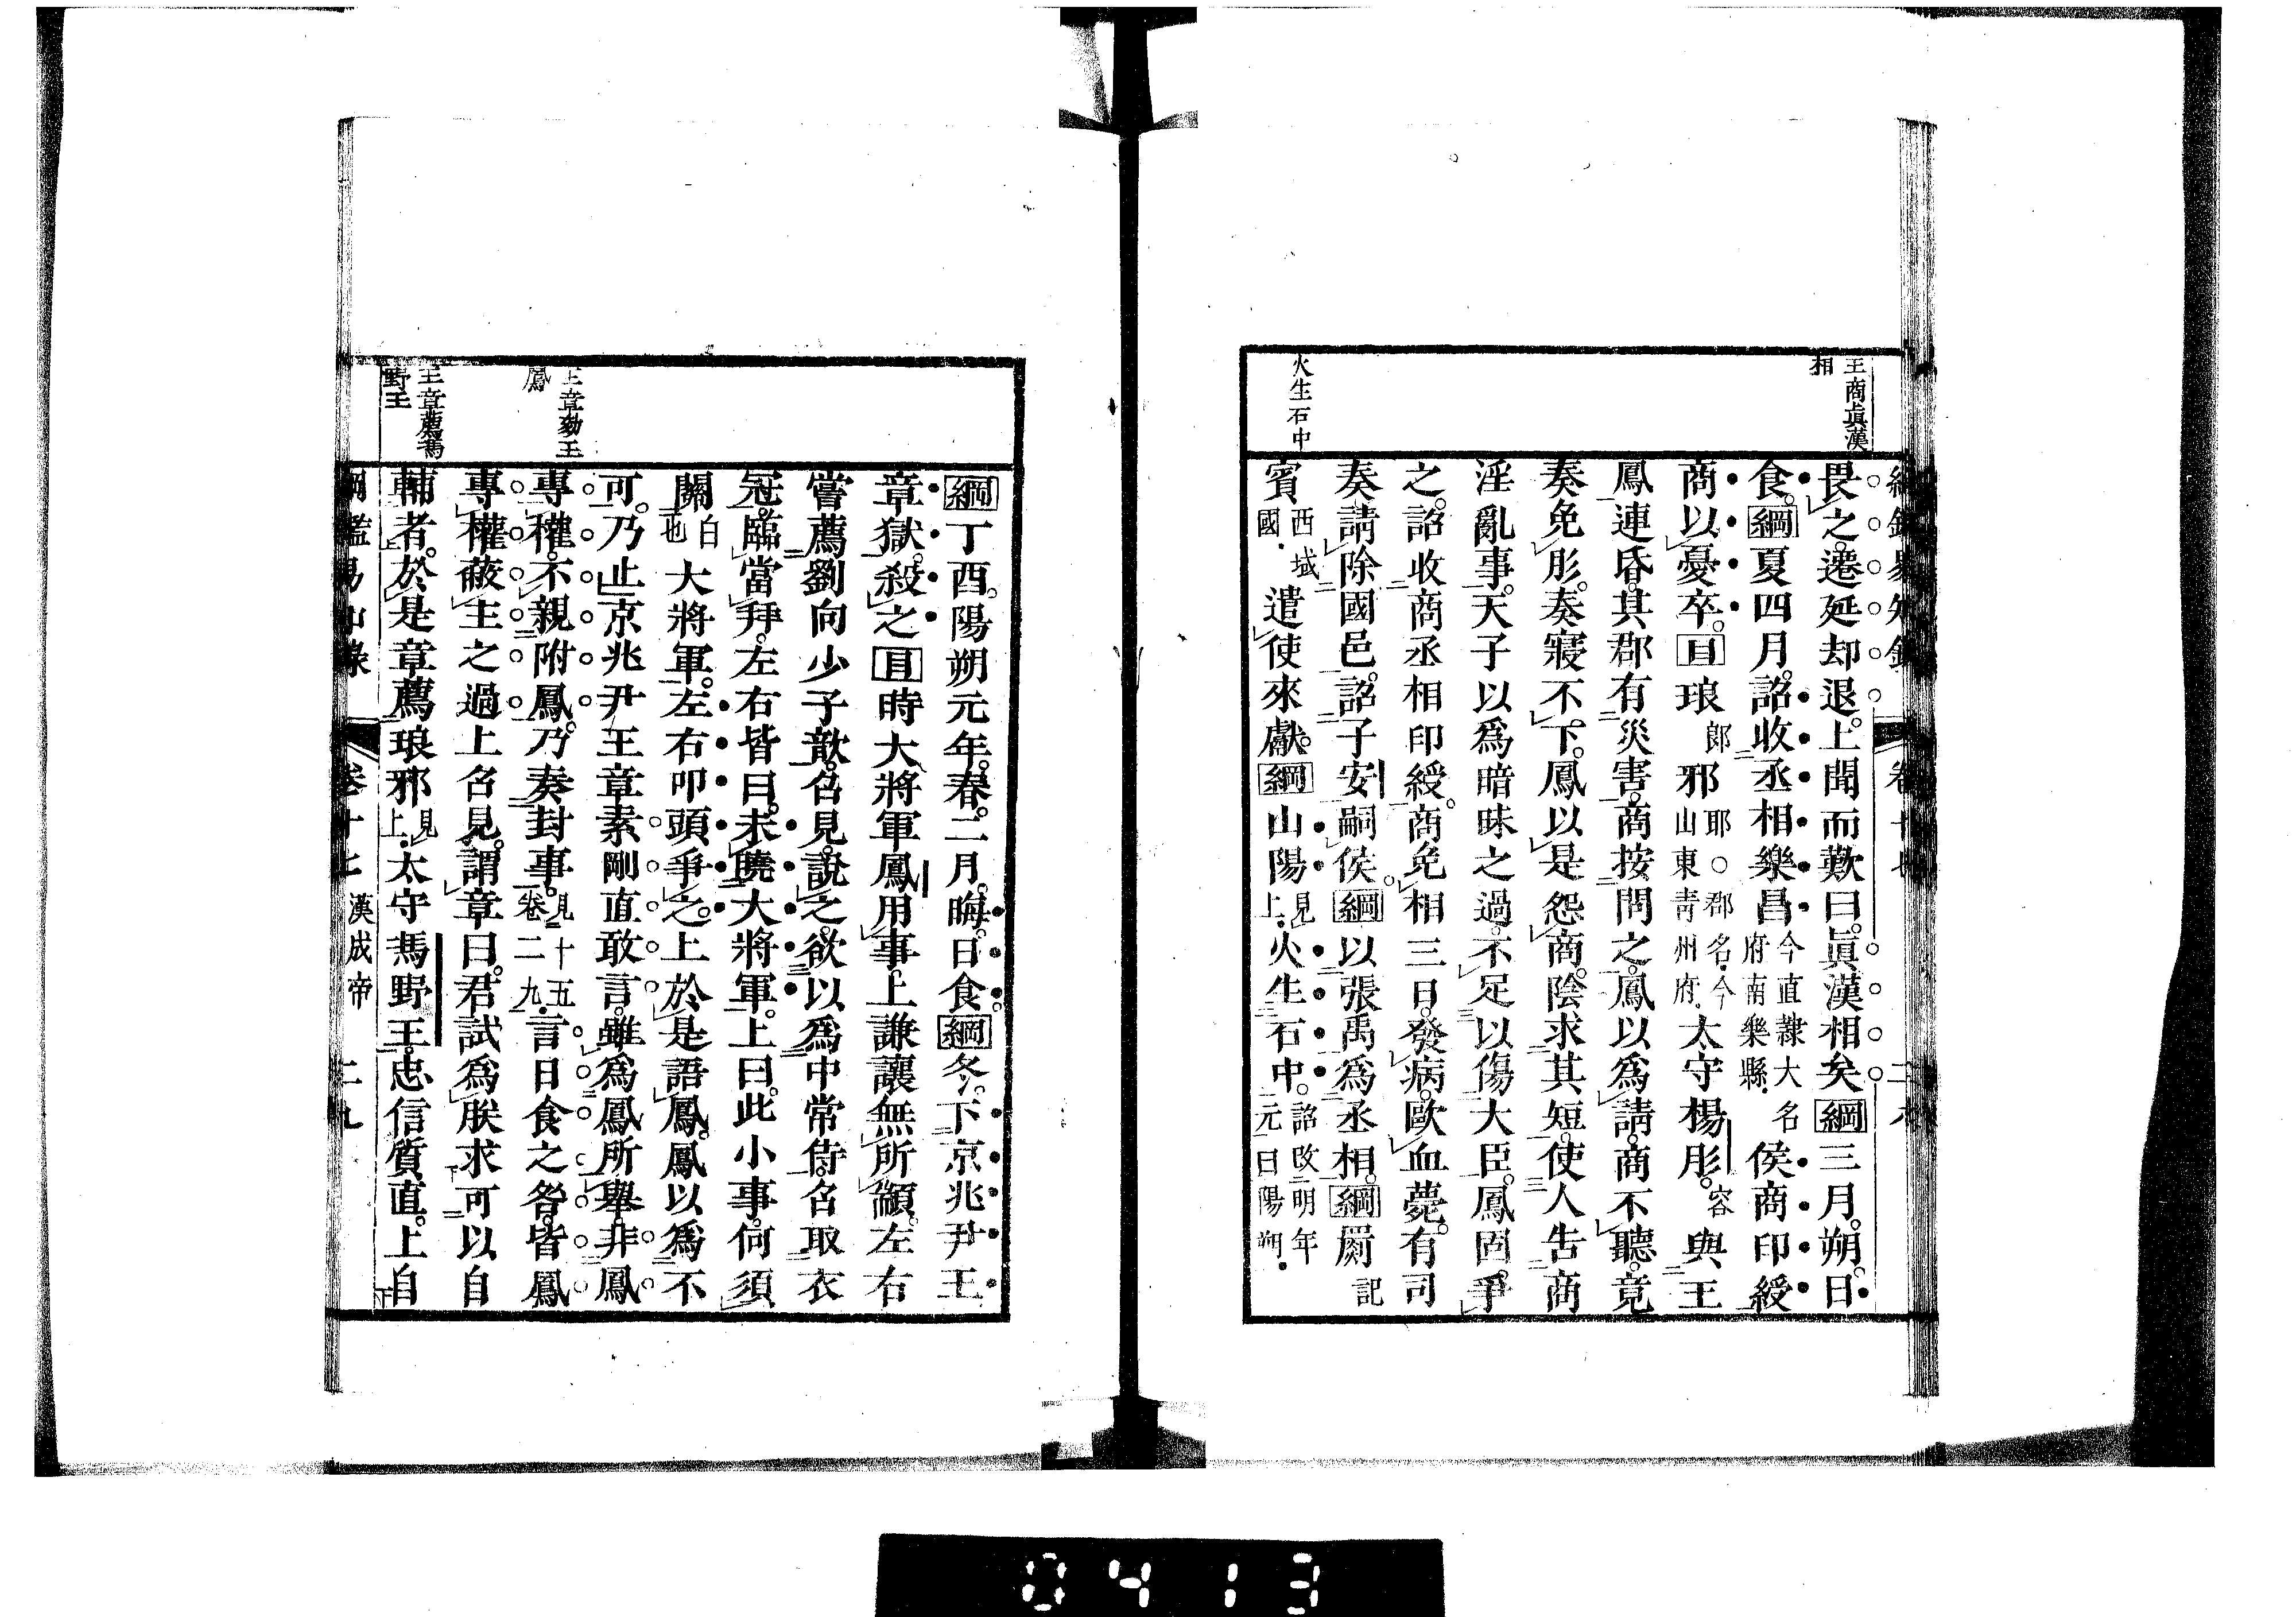 王商眞漢
相
火生石中
畏之遷延却退上聞而歎曰眞漢相矣綱三月朔日
食綱夏四月詔收丞相樂昌今直隷大名府南樂縣侯商印綬
商以憂卒目琅郞邪耶○郡名今山東青州府太守楊肜容與王
鳳連昏其郡有災害商按問之鳳以爲請商不聽竟
奏免肜奏寢不下鳳以是怨商陰求其短使人告商
淫亂事天子以爲暗昧之過不足以傷大臣鳳固爭
之詔收商丞相印綬商免相三日發病歐血薨有司
奏請除國邑詔子安嗣侯綱以張禹爲丞相綱罽記
賓西域國遣使來獻綱山陽見上火生石中詔改明年元曰陽朔
王章劾王
鳳
王章薦馮
野王
綱丁酉陽朔元年春二月晦日食綱冬下京兆尹王
章獄殺之目時大將軍鳳用事上謙讓無所顓左右
嘗薦劉向少子歆召見說之欲以爲中常侍召取衣
冠臨當拜左右皆曰未曉大將軍上曰此小事何須
關白也大將軍左右叩頭爭之上於是語鳳鳳以爲不
可乃止京兆尹王章素剛直敢言雖爲鳳所舉非鳳
專權不親附鳳乃奏封事見十五卷二九言日食之咎皆鳳
專權蔽主之過上召見謂章曰君試爲朕求可以自
輔者於是章薦琅邪見上太守馮野王忠信質直上自
綱鑑易知錄 卷十七 漢成帝 二九